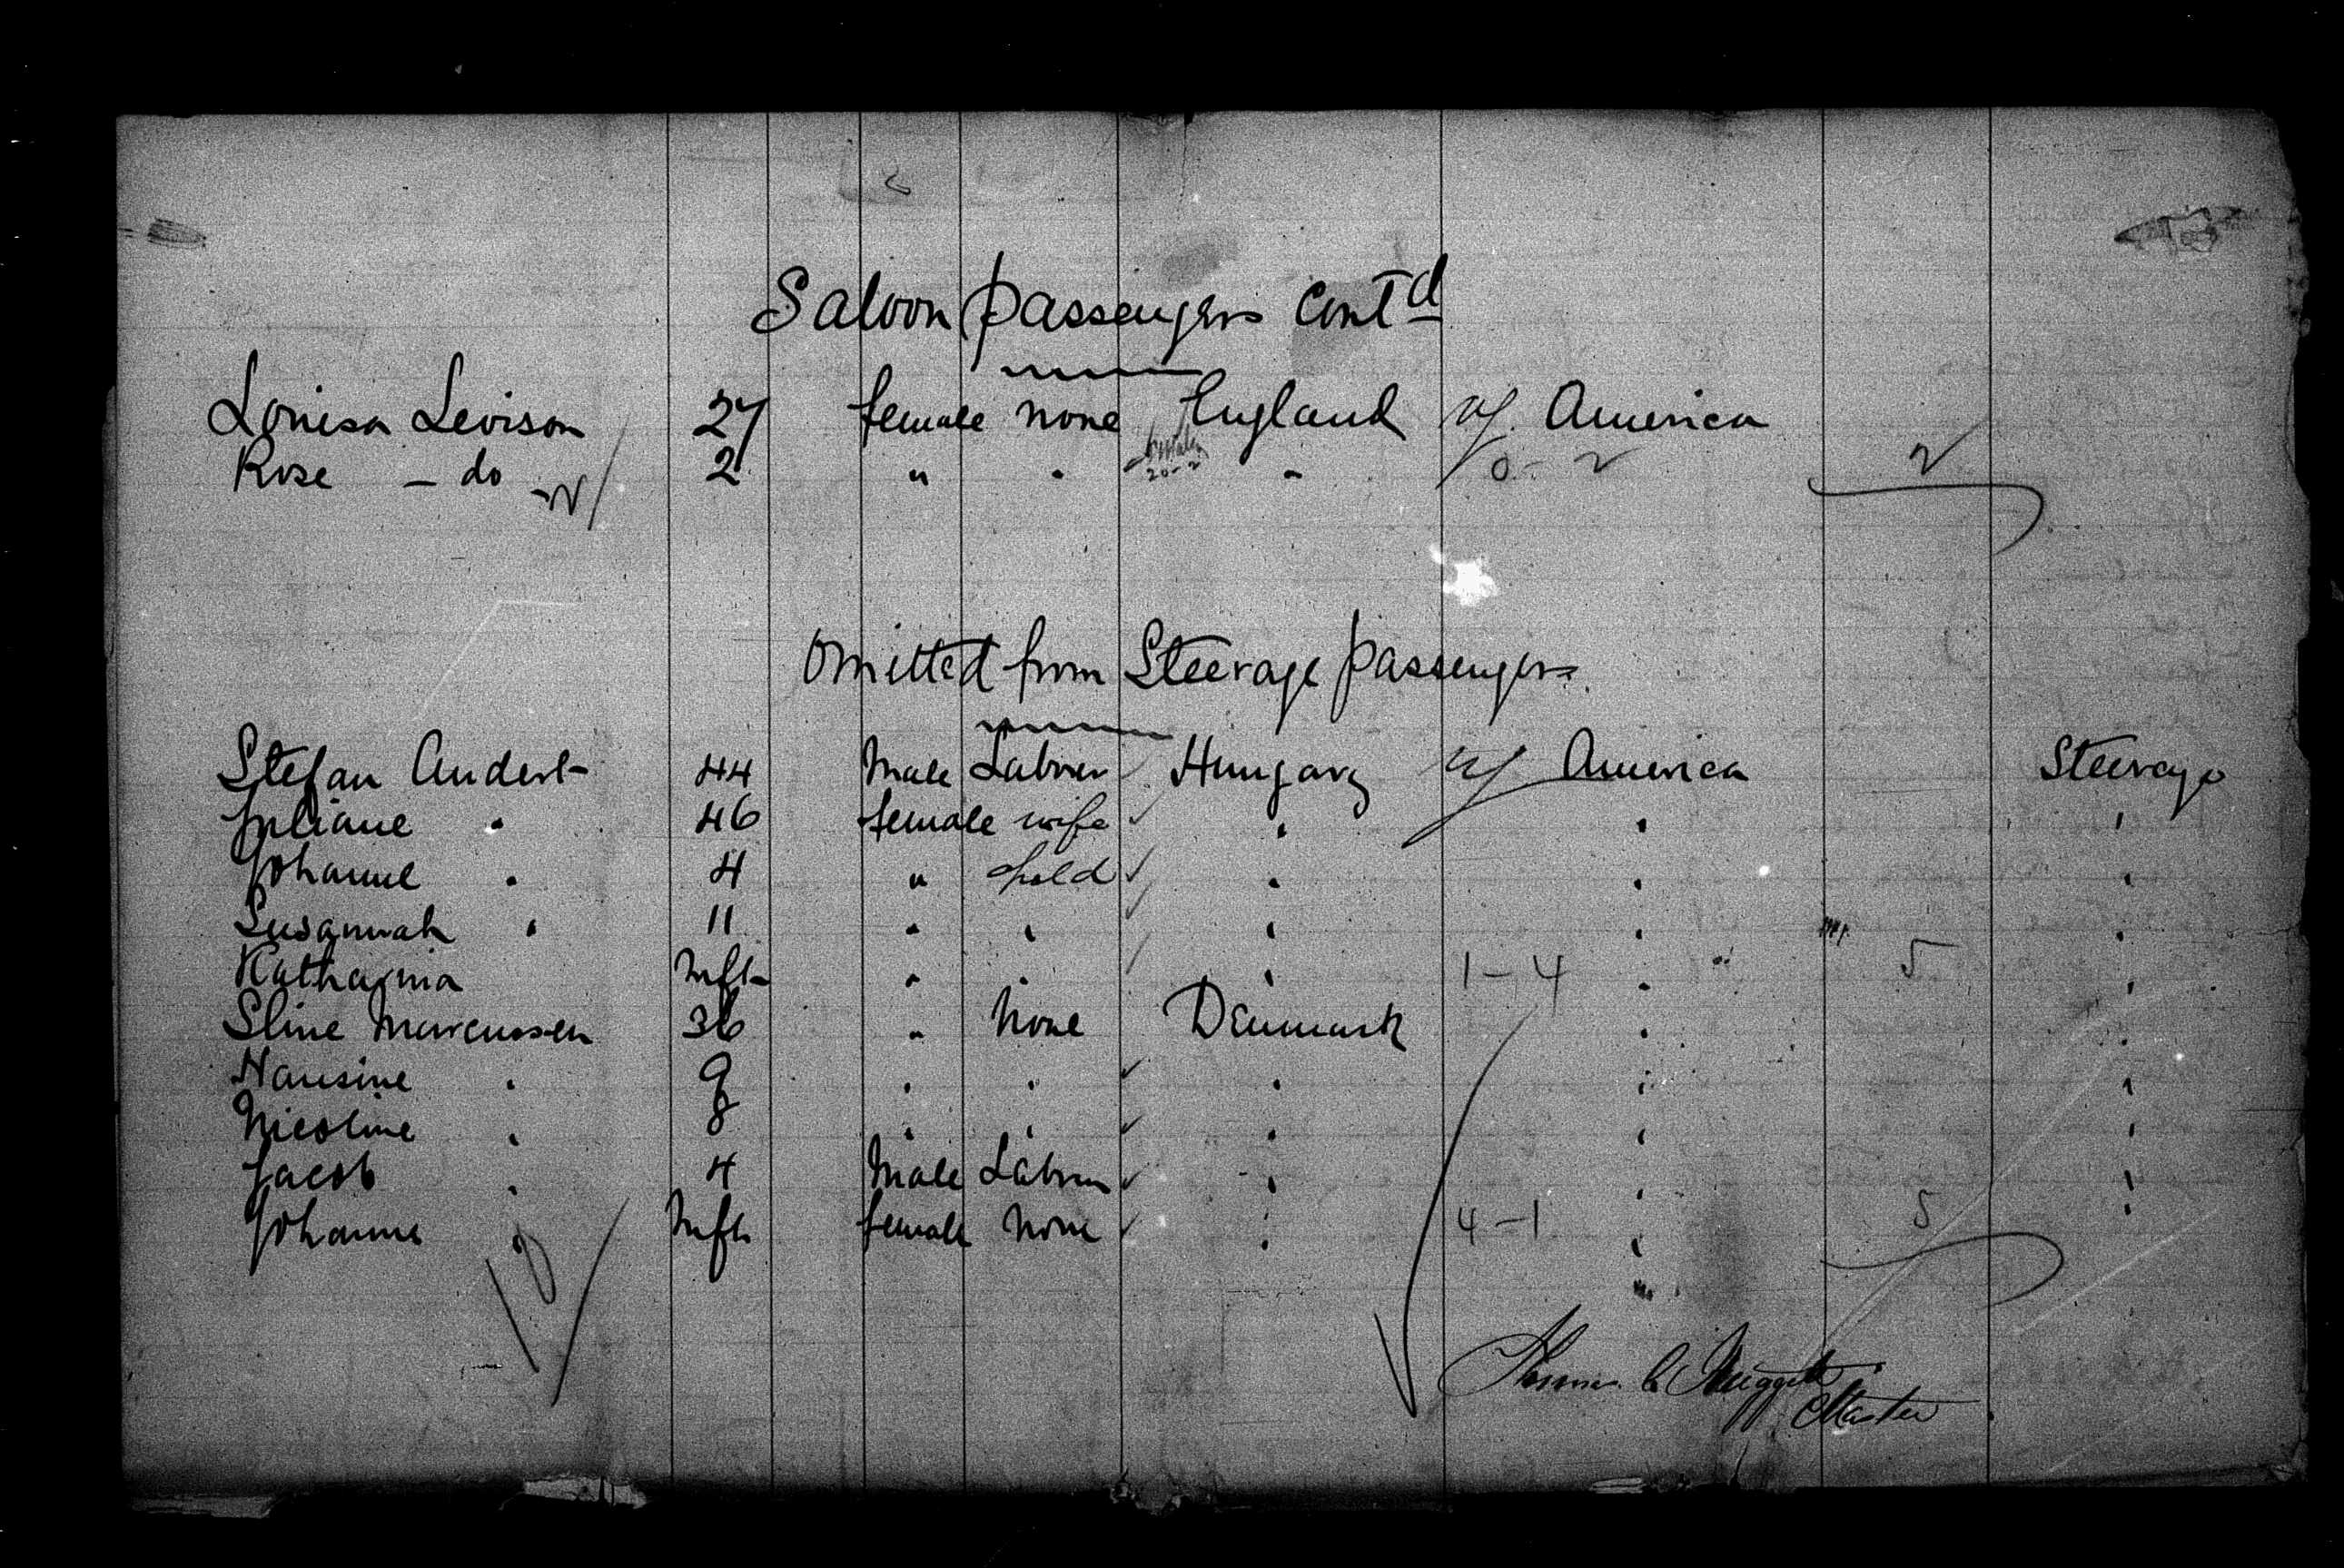 Saloon passengers Contd
Louisa Levison 27 female none England US America
Rose - do 2 " " " 0 - 2 2
Omitted from Steerage passengers
Stefan Anderl 44 Male Labrer Hungary US America Steerage
Juliane " 46 female wife " " "
Johanne " 4 " child " " "
Susannah " 11 " " " " "
Katharina Inft " " " 1-4 " 5 "
Sline Marcussen 36 " None Denmark " "
Hansine " 9 " " " " "
Nicoline " 8 " " " " "
Jacob " 4 Male Labrer " " "
Johanne Inft female None " 4-1 " 5 "
10
Master